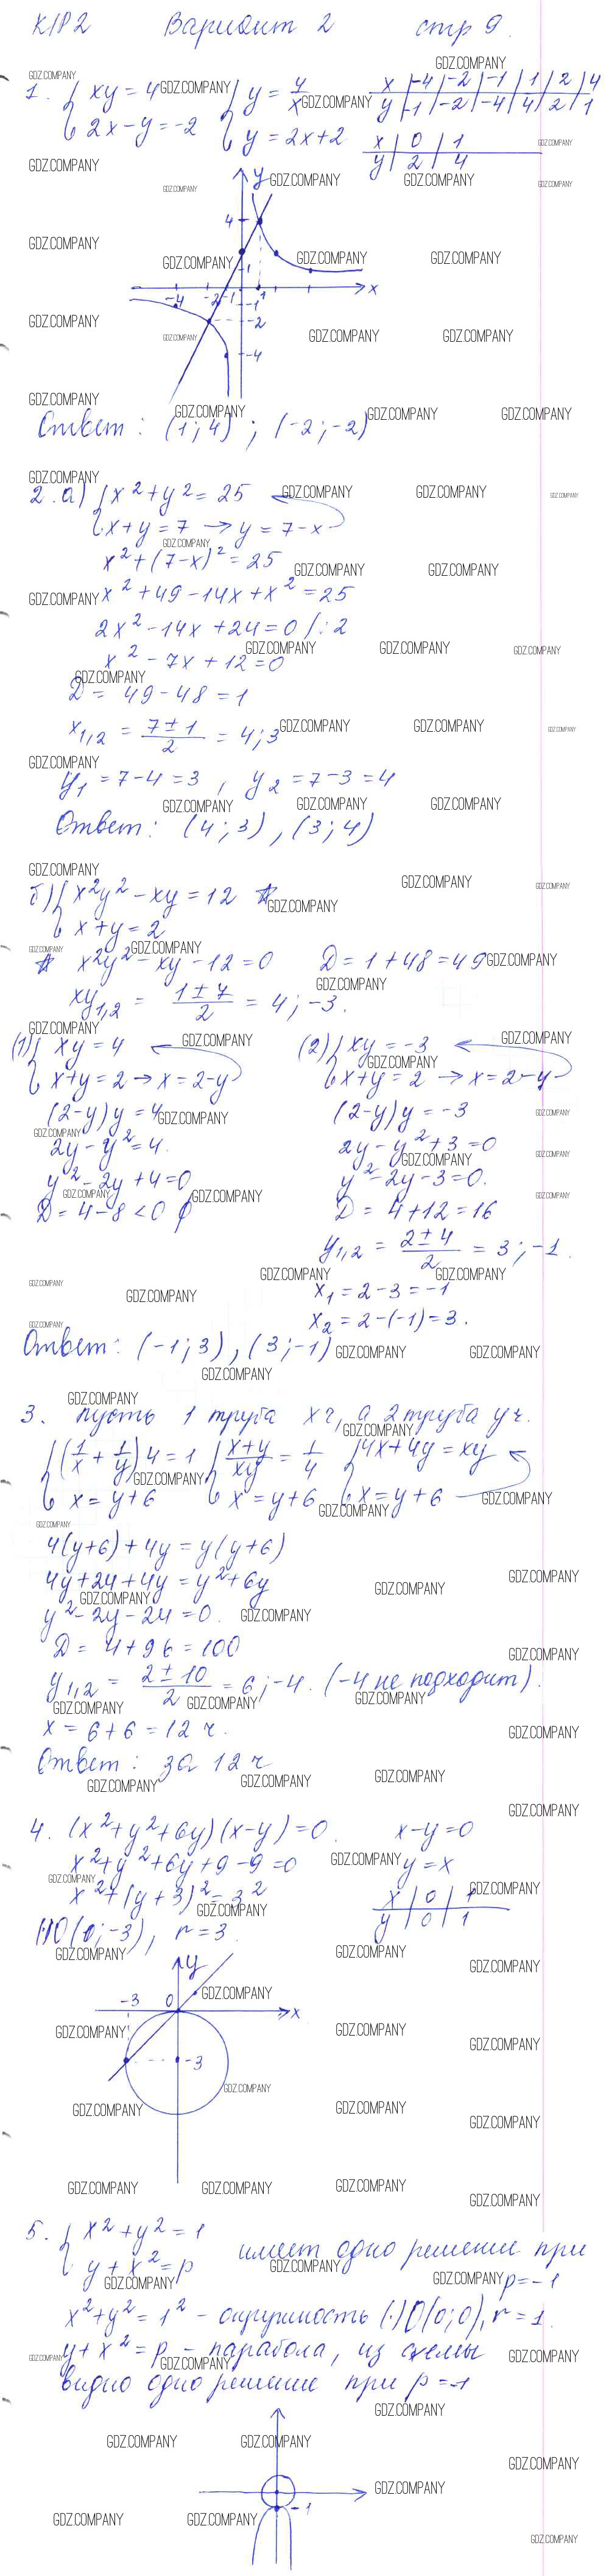 К/Р2 Вариант 2 стр 9.
1. { xy = 4 { y = 4/x x | -4 | -2 | -1 | 1 | 2 | 4
{ 2x - y = -2 { y = 2x + 2 y | -1 | -2 | -4 | 4 | 2 | 1
x | 0 | 1
y | 2 | 4
y
4
1
-4 -2 -1 1 x
-1
-2
-4
Ответ: (1; 4) ; (-2; -2)
2. а) { x² + y² = 25
{ x + y = 7 → y = 7 - x
x² + (7 - x)² = 25
x² + 49 - 14x + x² = 25
2x² - 14x + 24 = 0 /: 2
x² - 7x + 12 = 0
D = 49 - 48 = 1
x₁,₂ = (7 ± 1)/2 = 4; 3
y₁ = 7 - 4 = 3 , y₂ = 7 - 3 = 4
Ответ: (4; 3), (3; 4)
б) { x²y² - xy = 12 ☆
{ x + y = 2
☆ x²y² - xy - 12 = 0 D = 1 + 48 = 49
xy₁,₂ = (1 ± 7)/2 = 4; -3.
(1) { xy = 4 (2) { xy = -3
{ x + y = 2 → x = 2 - y { x + y = 2 → x = 2 - y
(2 - y) y = 4 (2 - y) y = -3
2y - y² = 4. 2y - y² + 3 = 0
y² - 2y + 4 = 0 y² - 2y - 3 = 0.
D = 4 - 8 < 0 ∅ D = 4 + 12 = 16
y₁,₂ = (2 ± 4)/2 = 3; -1.
x₁ = 2 - 3 = -1
x₂ = 2 - (-1) = 3.
Ответ: (-1; 3), (3; -1)
3. Пусть 1 труба x ч, а 2 труба y ч.
{ (1/x + 1/y) 4 = 1 { (x + y)/xy = 1/4 { 4x + 4y = xy
{ x = y + 6 { x = y + 6 { x = y + 6
4(y + 6) + 4y = y(y + 6)
4y + 24 + 4y = y² + 6y
y² - 2y - 24 = 0.
D = 4 + 96 = 100
y₁,₂ = (2 ± 10)/2 = 6; -4. (-4 не подходит).
x = 6 + 6 = 12 ч.
Ответ: за 12 ч
4. (x² + y² + 6y)(x - y) = 0. x - y = 0
x² + y² + 6y + 9 - 9 = 0 y = x
x² + (y + 3)² = 3² x | 0 | 1
(·)O(0; -3), r = 3. y | 0 | 1
y
-3 0 x
-3
5. { x² + y² = 1
{ y + x² = p имеет одно решение при
p = -1
x² + y² = 1² - окружность (·)O(0; 0), r = 1.
y + x² = p - парабола, из схемы
видно одно решение при p = -1
-1
GDZ.COMPANY